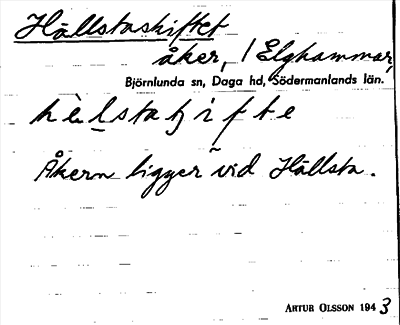 Hällstaskiftet
åker, / Elghammar,
Björnlunda sn, Daga hd, Södermanlands län.
Åkern ligger vid Hällsta.
ARTUR OLSSON 1943